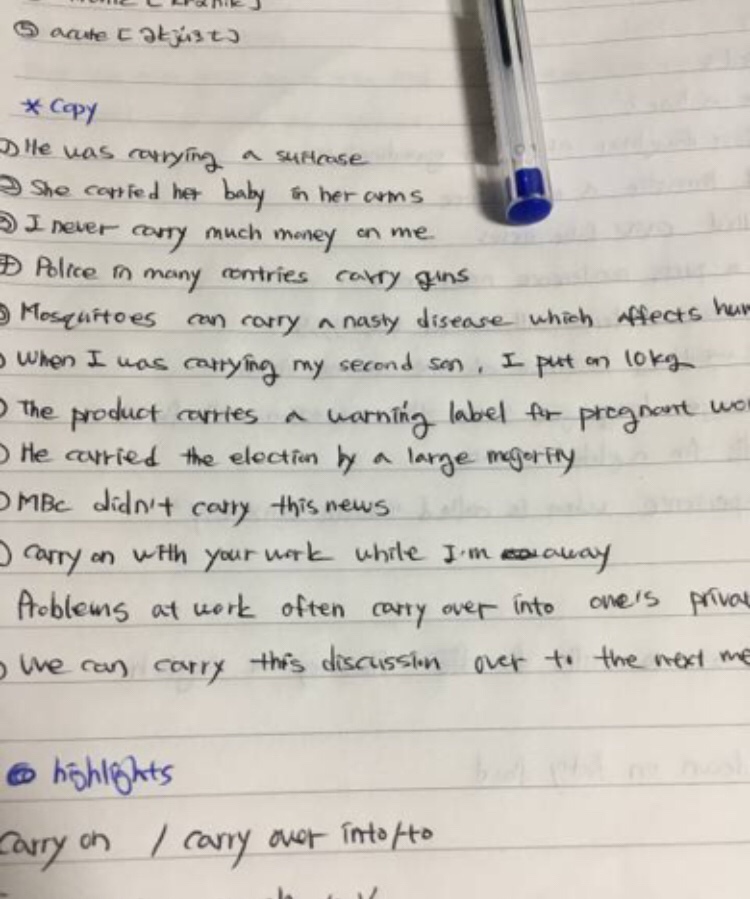 ⑤ acute [əkjúːt]
* Copy
① He was carrying a suitcase
② She carried her baby in her arms
③ I never carry much money on me
④ Police in many contries carry guns
⑤ Mosquitoes can carry a nasty disease which affects hum
When I was carrying my second son, I put on 10kg
The product carries a warning label for pregnant wo
He carried the election by a large majority
MBC didn't carry this news
Carry on with your work while I'm away
Problems at work often carry over into one's privat
We can carry this discussion over to the next me
highlights
Carry on / carry over into/to